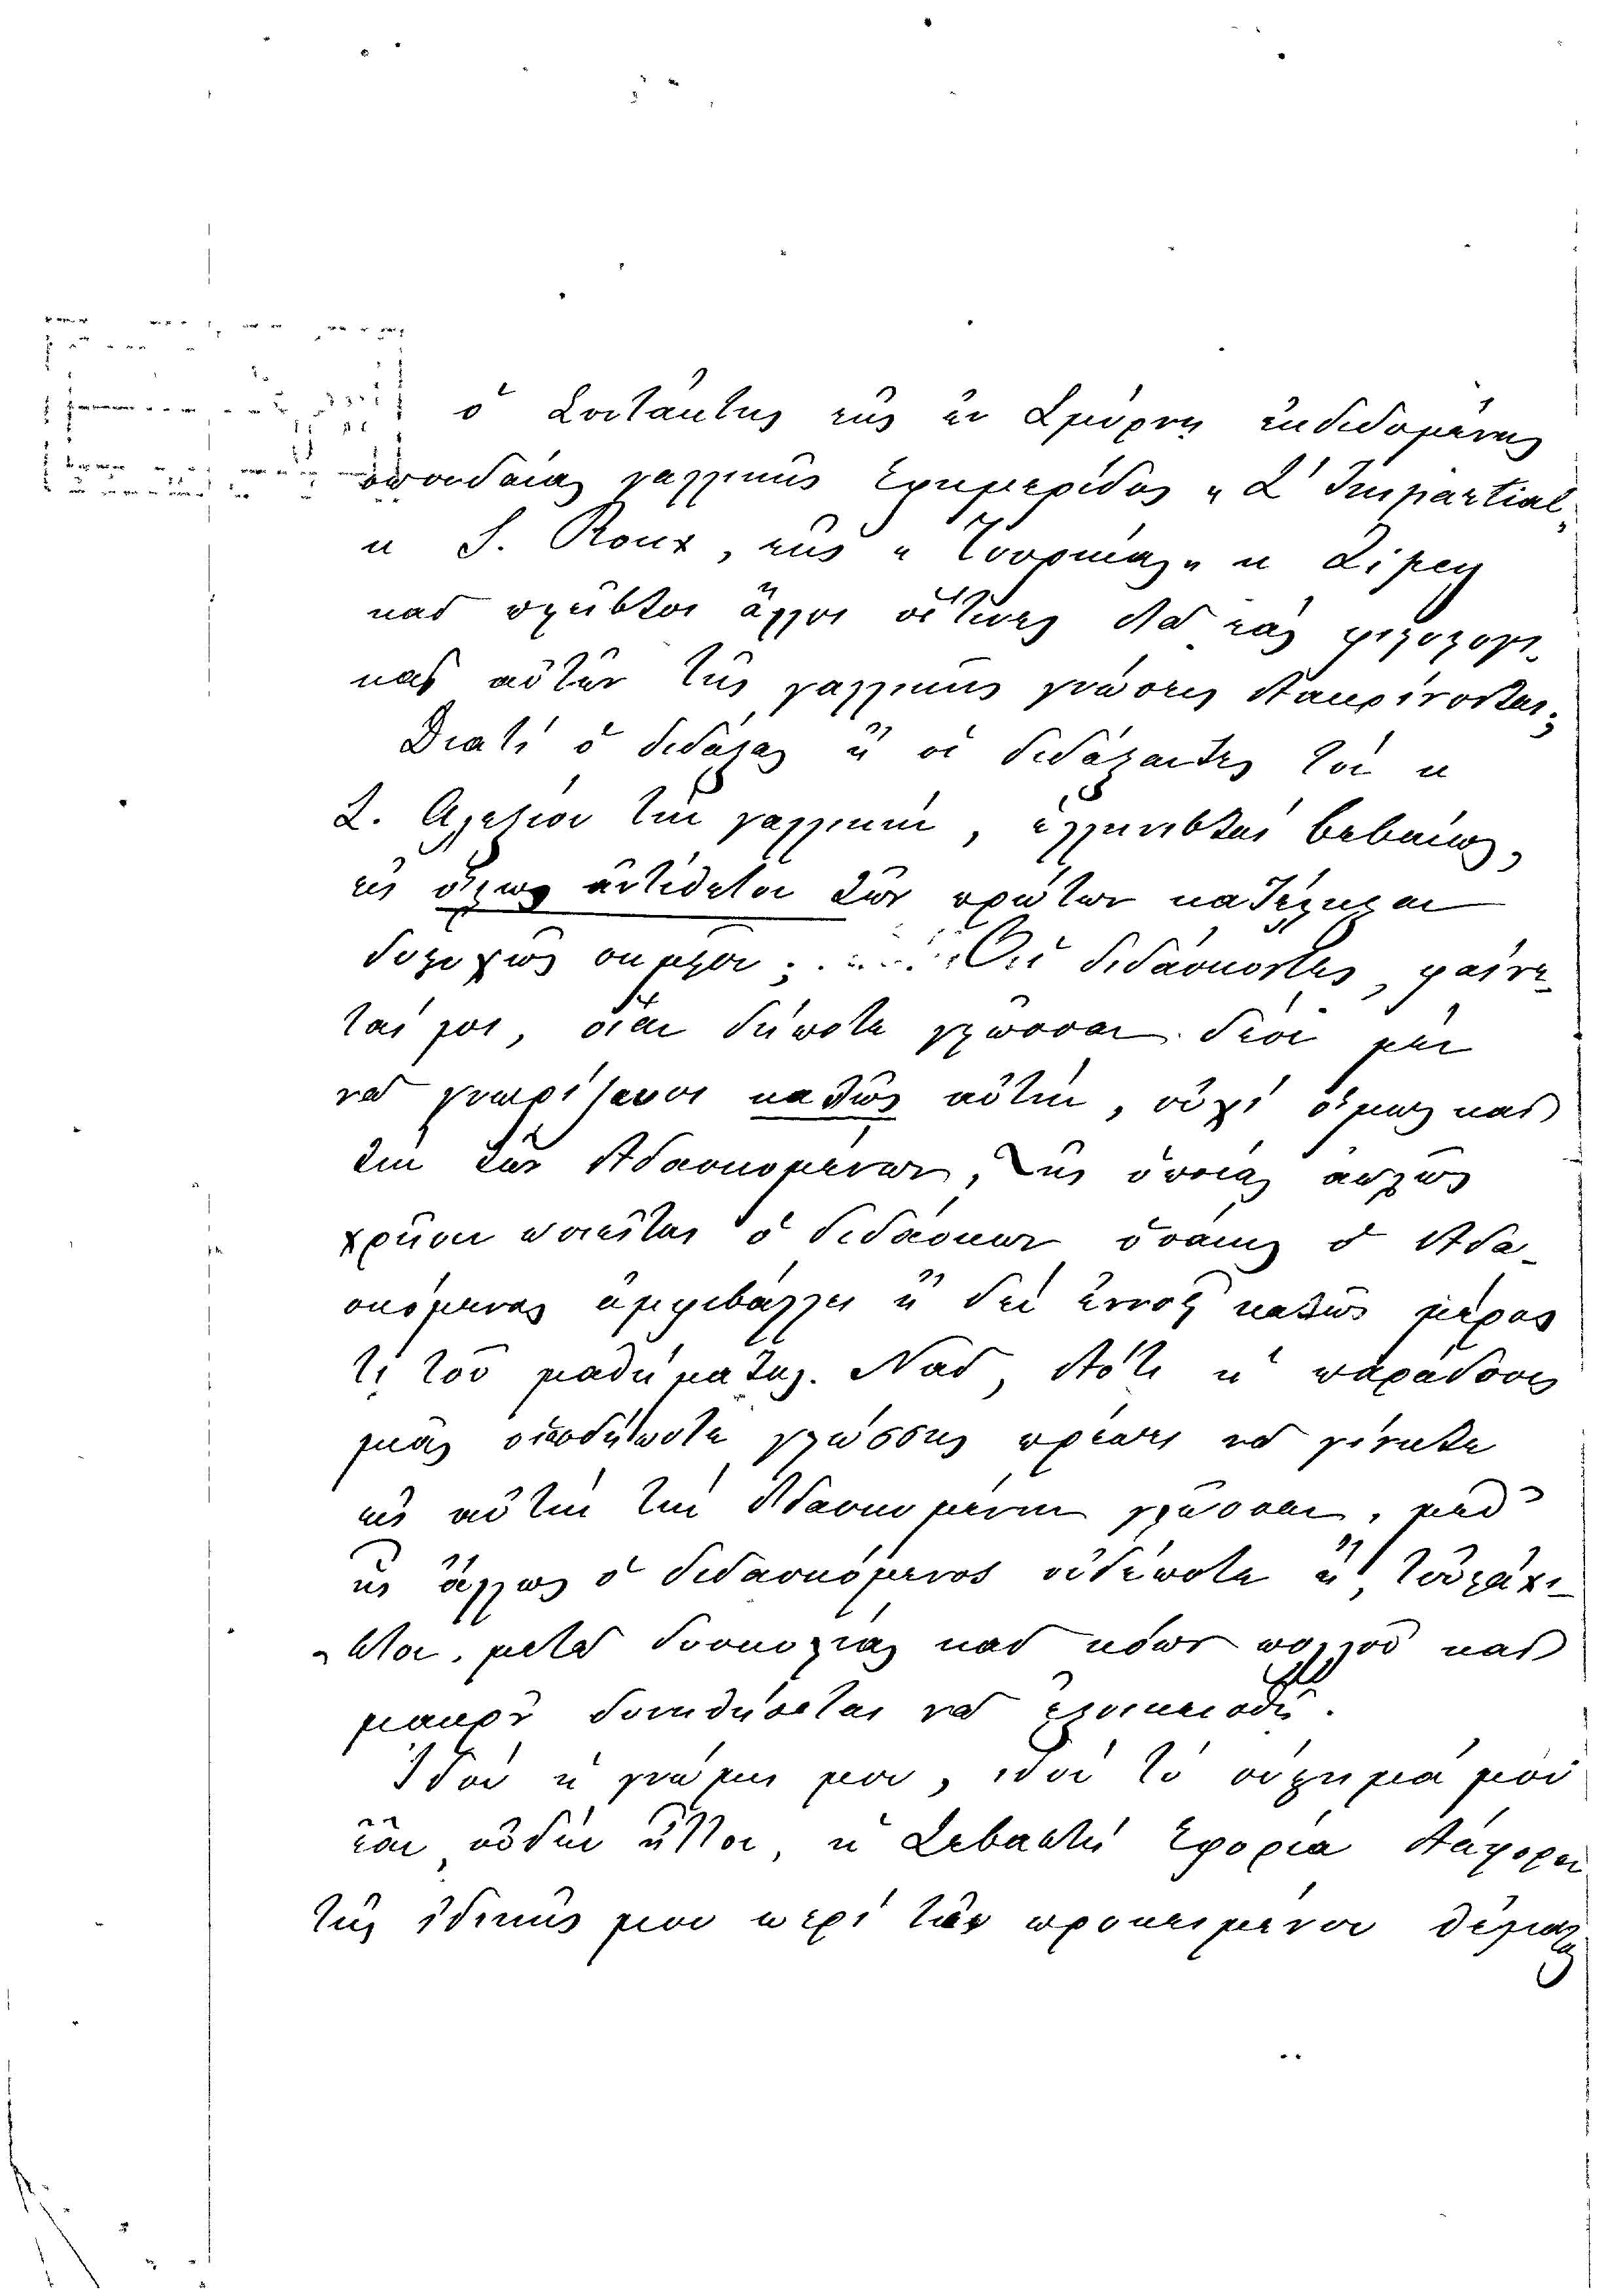 ὁ Συντάκτης τῆς ἐν Σμύρνῃ ἐκδιδομένης
σπουδαίας γαλλικῆς Ἐφημερίδος „L' Impartial„
κ S. Roux, τῆς „
καὶ πλεῖστοι ἄλλοι οἵτινες διὰ τὰς φιλολογι-
κὰς αὐτῶν τῆς γαλλικῆς γνώσεις διακρίνονται;
Διατί ὁ διδάξας ἢ οἱ διδάξαντες τὸν κ
Σ. τὴν γαλλικήν, ἑλληνιστὶ βεβαίως,
εἰς ὅλως ἀντίθετον τῶν πρώτων κατέληξαν
; Οἱ διδάσκοντες, φαίνε-
ταί μοι, οἵαν δήποτε γλῶσσαν δέον μὲν
νὰ γνωρίζωσι καλῶς αὐτήν, οὐχὶ ὅμως καὶ
τὴν τῶν διδασκομένων, τῆς ὁποίας ἁπλῶς
χρῆσιν ποιεῖται ὁ διδάσκων ὁσάκις ὁ διδα-
σκόμενος ἀμφιβάλλει ἢ δὲν ἐννοῇ καλῶς μέρος
τι τοῦ μαθήματος. Ναί, διότι ἡ παράδοσις
μιᾶς οἱασδήποτε γλώσσης πρέπει νὰ γίνεται
εἰς αὐτὴν τὴν διδασκομένην γλῶσσαν,
ἄλλως ὁ διδασκόμενος οὐδέποτε ἢ, τοὐλάχι-
στον, μετὰ δυσκολίας καὶ κόπου πολλοῦ καὶ
μακροῦ δυνηθήσεται νὰ ἐξοικειωθῇ.
Ἰδοὺ ἡ γνώμη μου, ἰδοὺ τὸ σύστημά μου
ἐὰν, οὐδὲν ἧττον, ἡ Σεβαστὴ Ἐφορία διάφορον
τῆς ἰδικῆς μου περὶ τοῦ προκειμένου θέματος